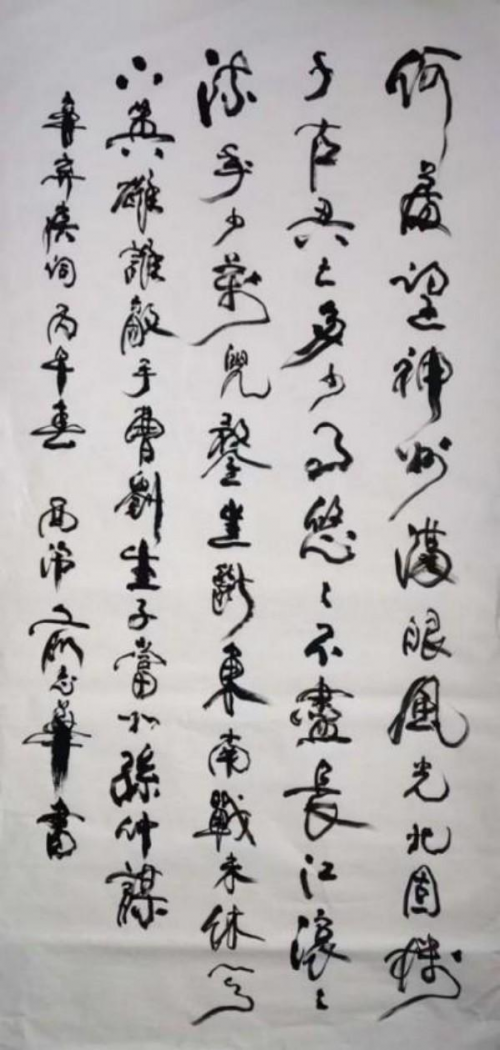 何處望神州滿眼風光北固樓
千古興亡多少事悠〻不盡長江滾〻
流年少萬兜鍪坐斷東南戰未休天
下英雄誰敵手曹劉生子當如孫仲謀
辛弃疾詞丙午春 志華書